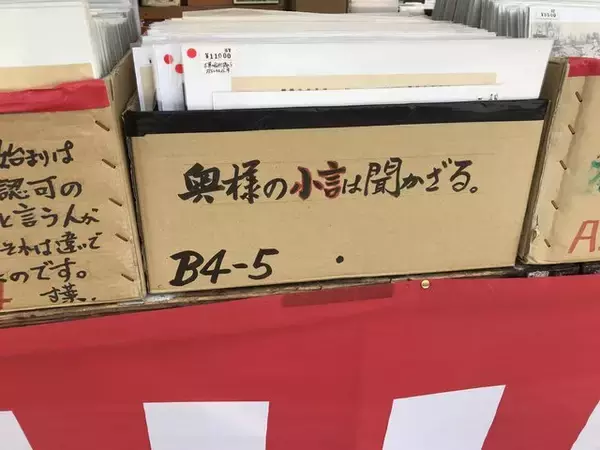 ¥11000
始まりは
認可の
と言うんが
それは違いで
のです。
奥様の小言は聞かざる。
B4-5
A